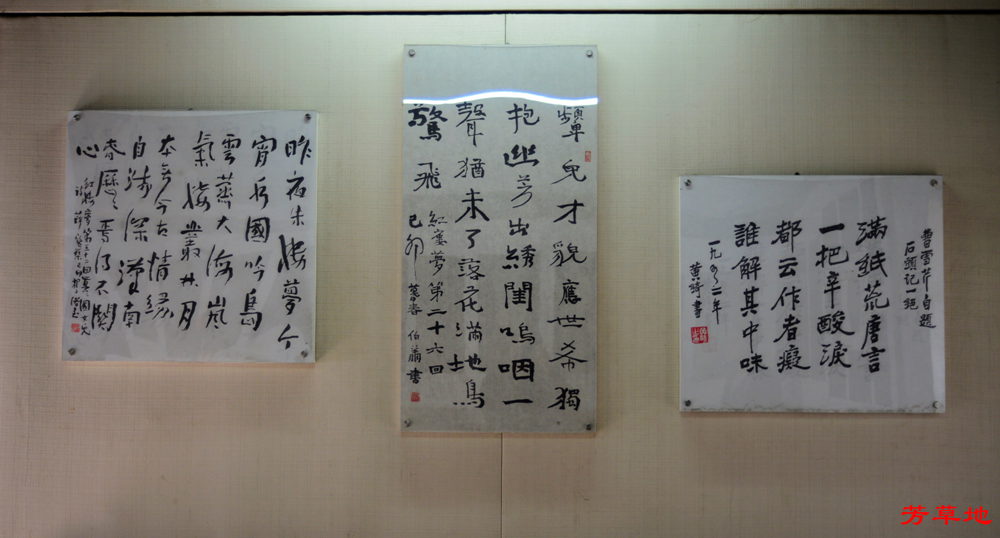 昨夜朱樓夢今
宵水國吟島
雲蒸大海嵐
氣接叢林月
本無今古情緣
自淺深漢南
春歷々焉得不關
心
顰兒才貌應世希獨
抱幽芳出綉閨嗚咽一
聲猶未了落花滿地鳥
驚飛
紅樓夢第二十六回
己卯暮春
曹雪芹自題
石頭記一絕
滿紙荒唐言
一把辛酸淚
都云作者癡
誰解其中味
一九九二年
黃綺書
芳草地